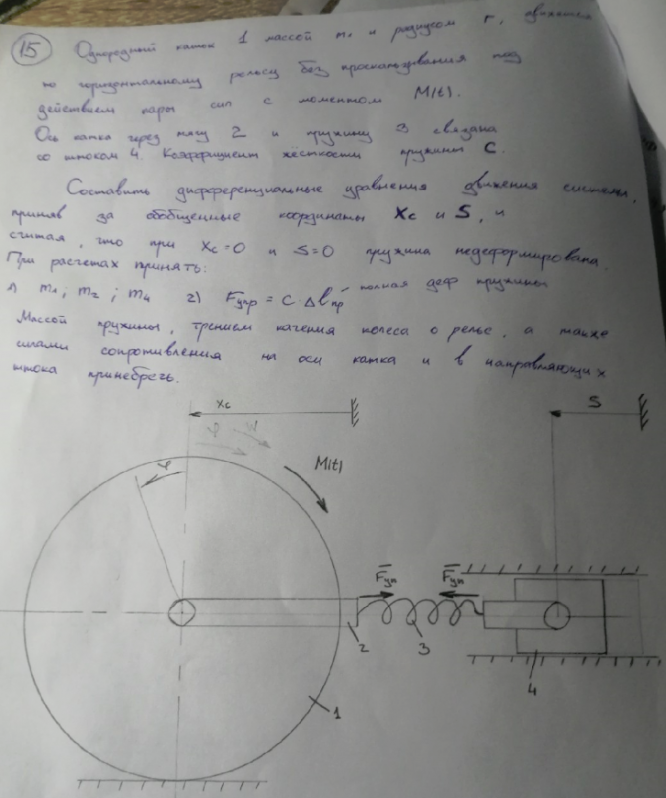 15 Однородный каток 1 массой m₁ и радиусом r, движется
по горизонтальному рельсу без проскальзывания под
действием пары сил с моментом M(t).
Ось катка через тягу 2 и пружину 3 связана
со штоком 4. Коэффициент жёсткости пружины C.
Составить дифференциальные уравнения движения системы,
приняв за обобщенные координаты Xc и S, и
считая, что при Xc=0 и S=0 пружина недеформирована.
При расчетах принять:
1) m₁; m₂; m₄ 2) Fупр = C·Δlпр полная деф пружины
Массой пружины, трением качения колеса о рельс, а также
силами сопротивления на оси катка и в направляющих
штока принебречь.
Xc
S
φ
M(t)
φ
Fуп
Fуп
2
3
4
1